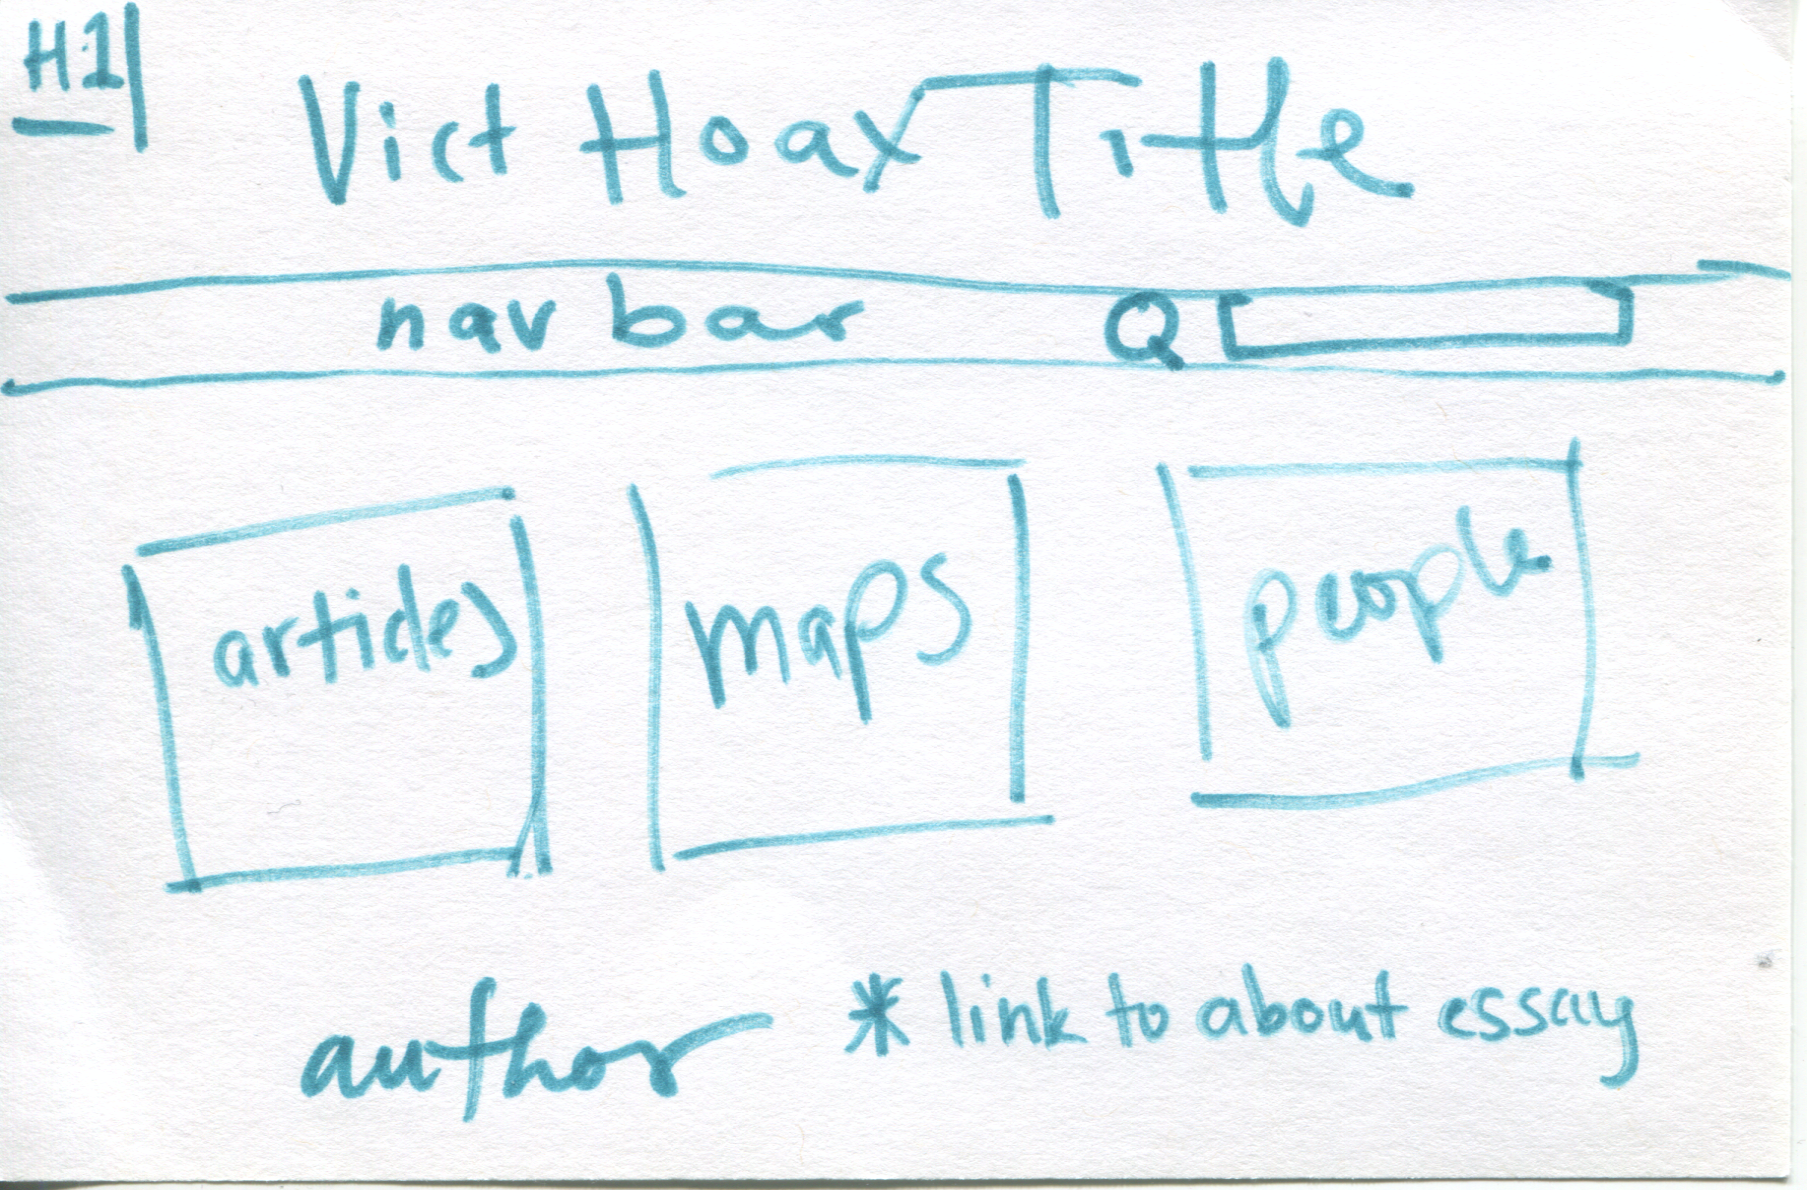 H1
Vict Hoax Title
nav bar
articles
maps
people
author
* link to about essay